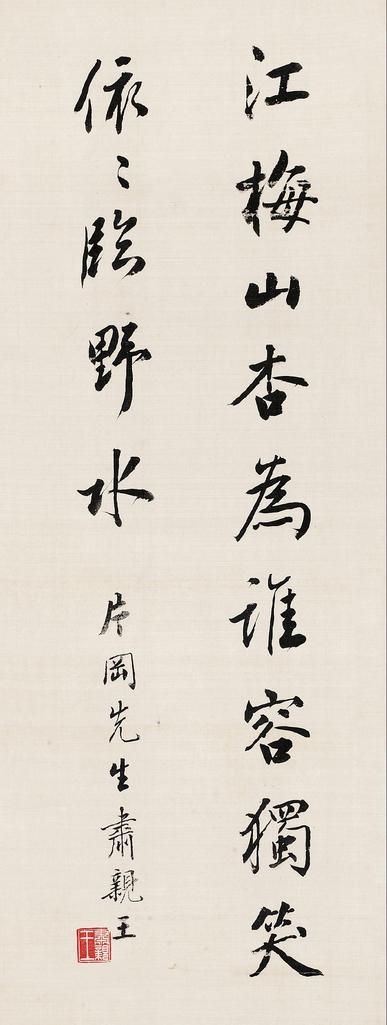 江梅山杏為誰容獨笑
依〻臨野水
片岡先生肅親王
肅親王